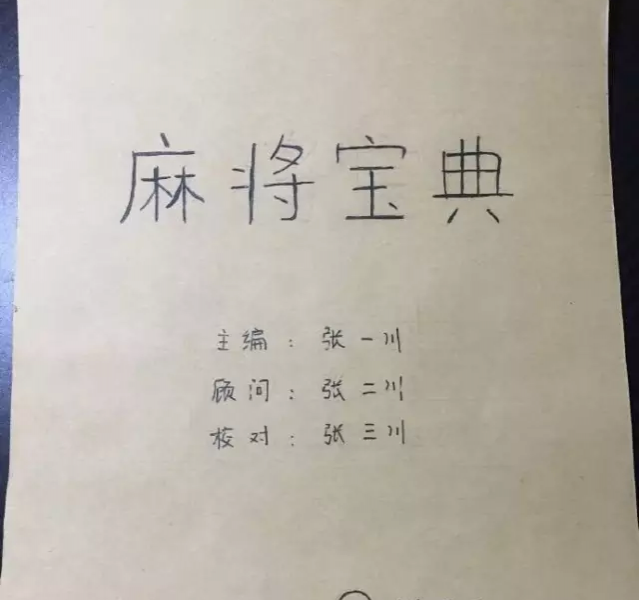 麻将宝典
主编：张一川
顾问：张二川
校对：张三川